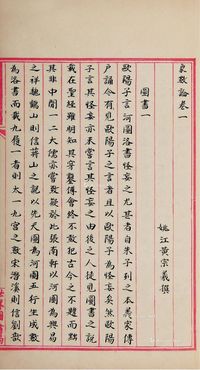 象數論卷一
姚江黃宗羲撰
圖書一
歐陽子言河圖洛書怪妄之尤甚者自朱子列之本義家傳
户誦今有見歐陽子之言者且以歐陽子為怪妄矣然歐陽
子言其怪妄亦未嘗言其怪妄之由後之人徒見圖書之說
載在聖經雖明知其穿鑿傅會終不敢犯古今之不韙而黜
其非中間一二大儒亦嘗致疑於此張南軒以河圖為興易
之祥魏鶴山則信蔣山之說以先天圖為河圖五行生成數
為洛書而戴九履一者則太一九宮之數宋潛溪則信劉歆